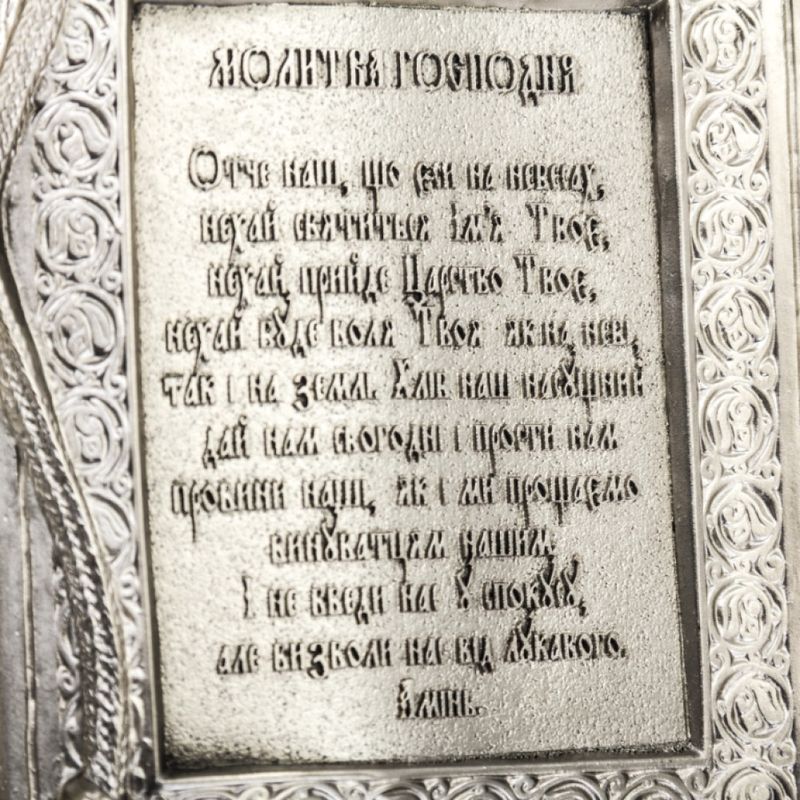 Молитва Господня
Отче наш, що єси на небесах,
нехай святиться Ім'я Твоє,
нехай прийде Царство Твоє,
нехай буде воля Твоя як на небі,
так і на землі. Хліб наш насущний
дай нам сьогодні і прости нам
провини наші, як і ми прощаємо
винуватцям нашим.
І не введи нас у спокусу,
але визволи нас від лукавого.
Амінь.